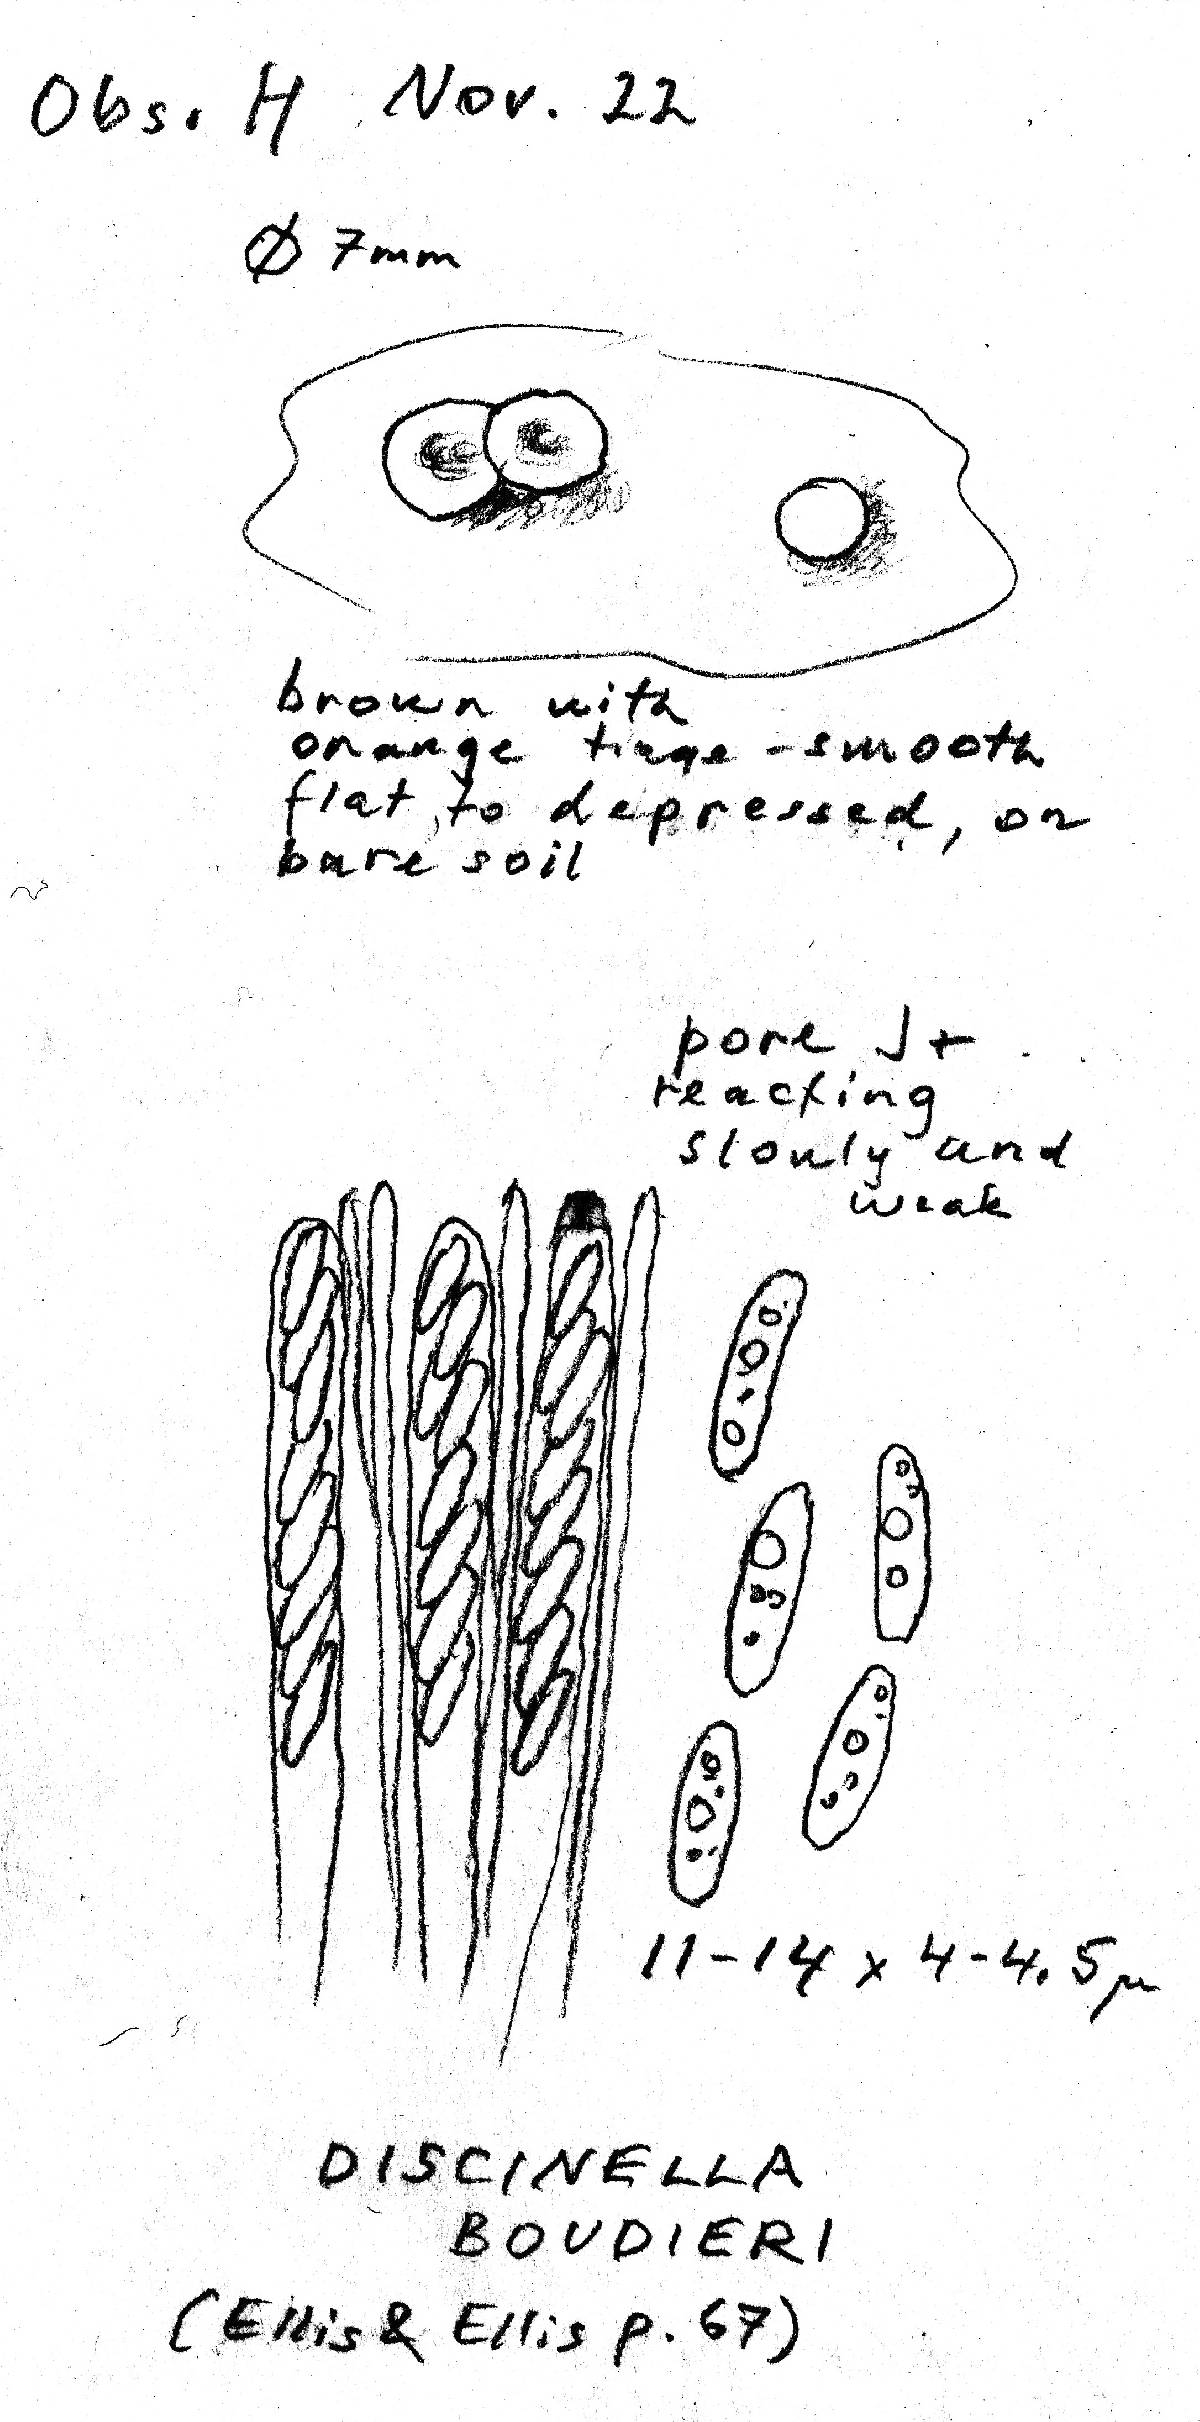 Obs. H Nov. 22
Ø 7mm
brown with
orange tinge - smooth
flat to depressed, on
bare soil
pore J+
reacting
slowly and
weak
11-14 x 4-4.5 µm
DISCINELLA
BOUDIERI
(Ellis & Ellis p. 67)